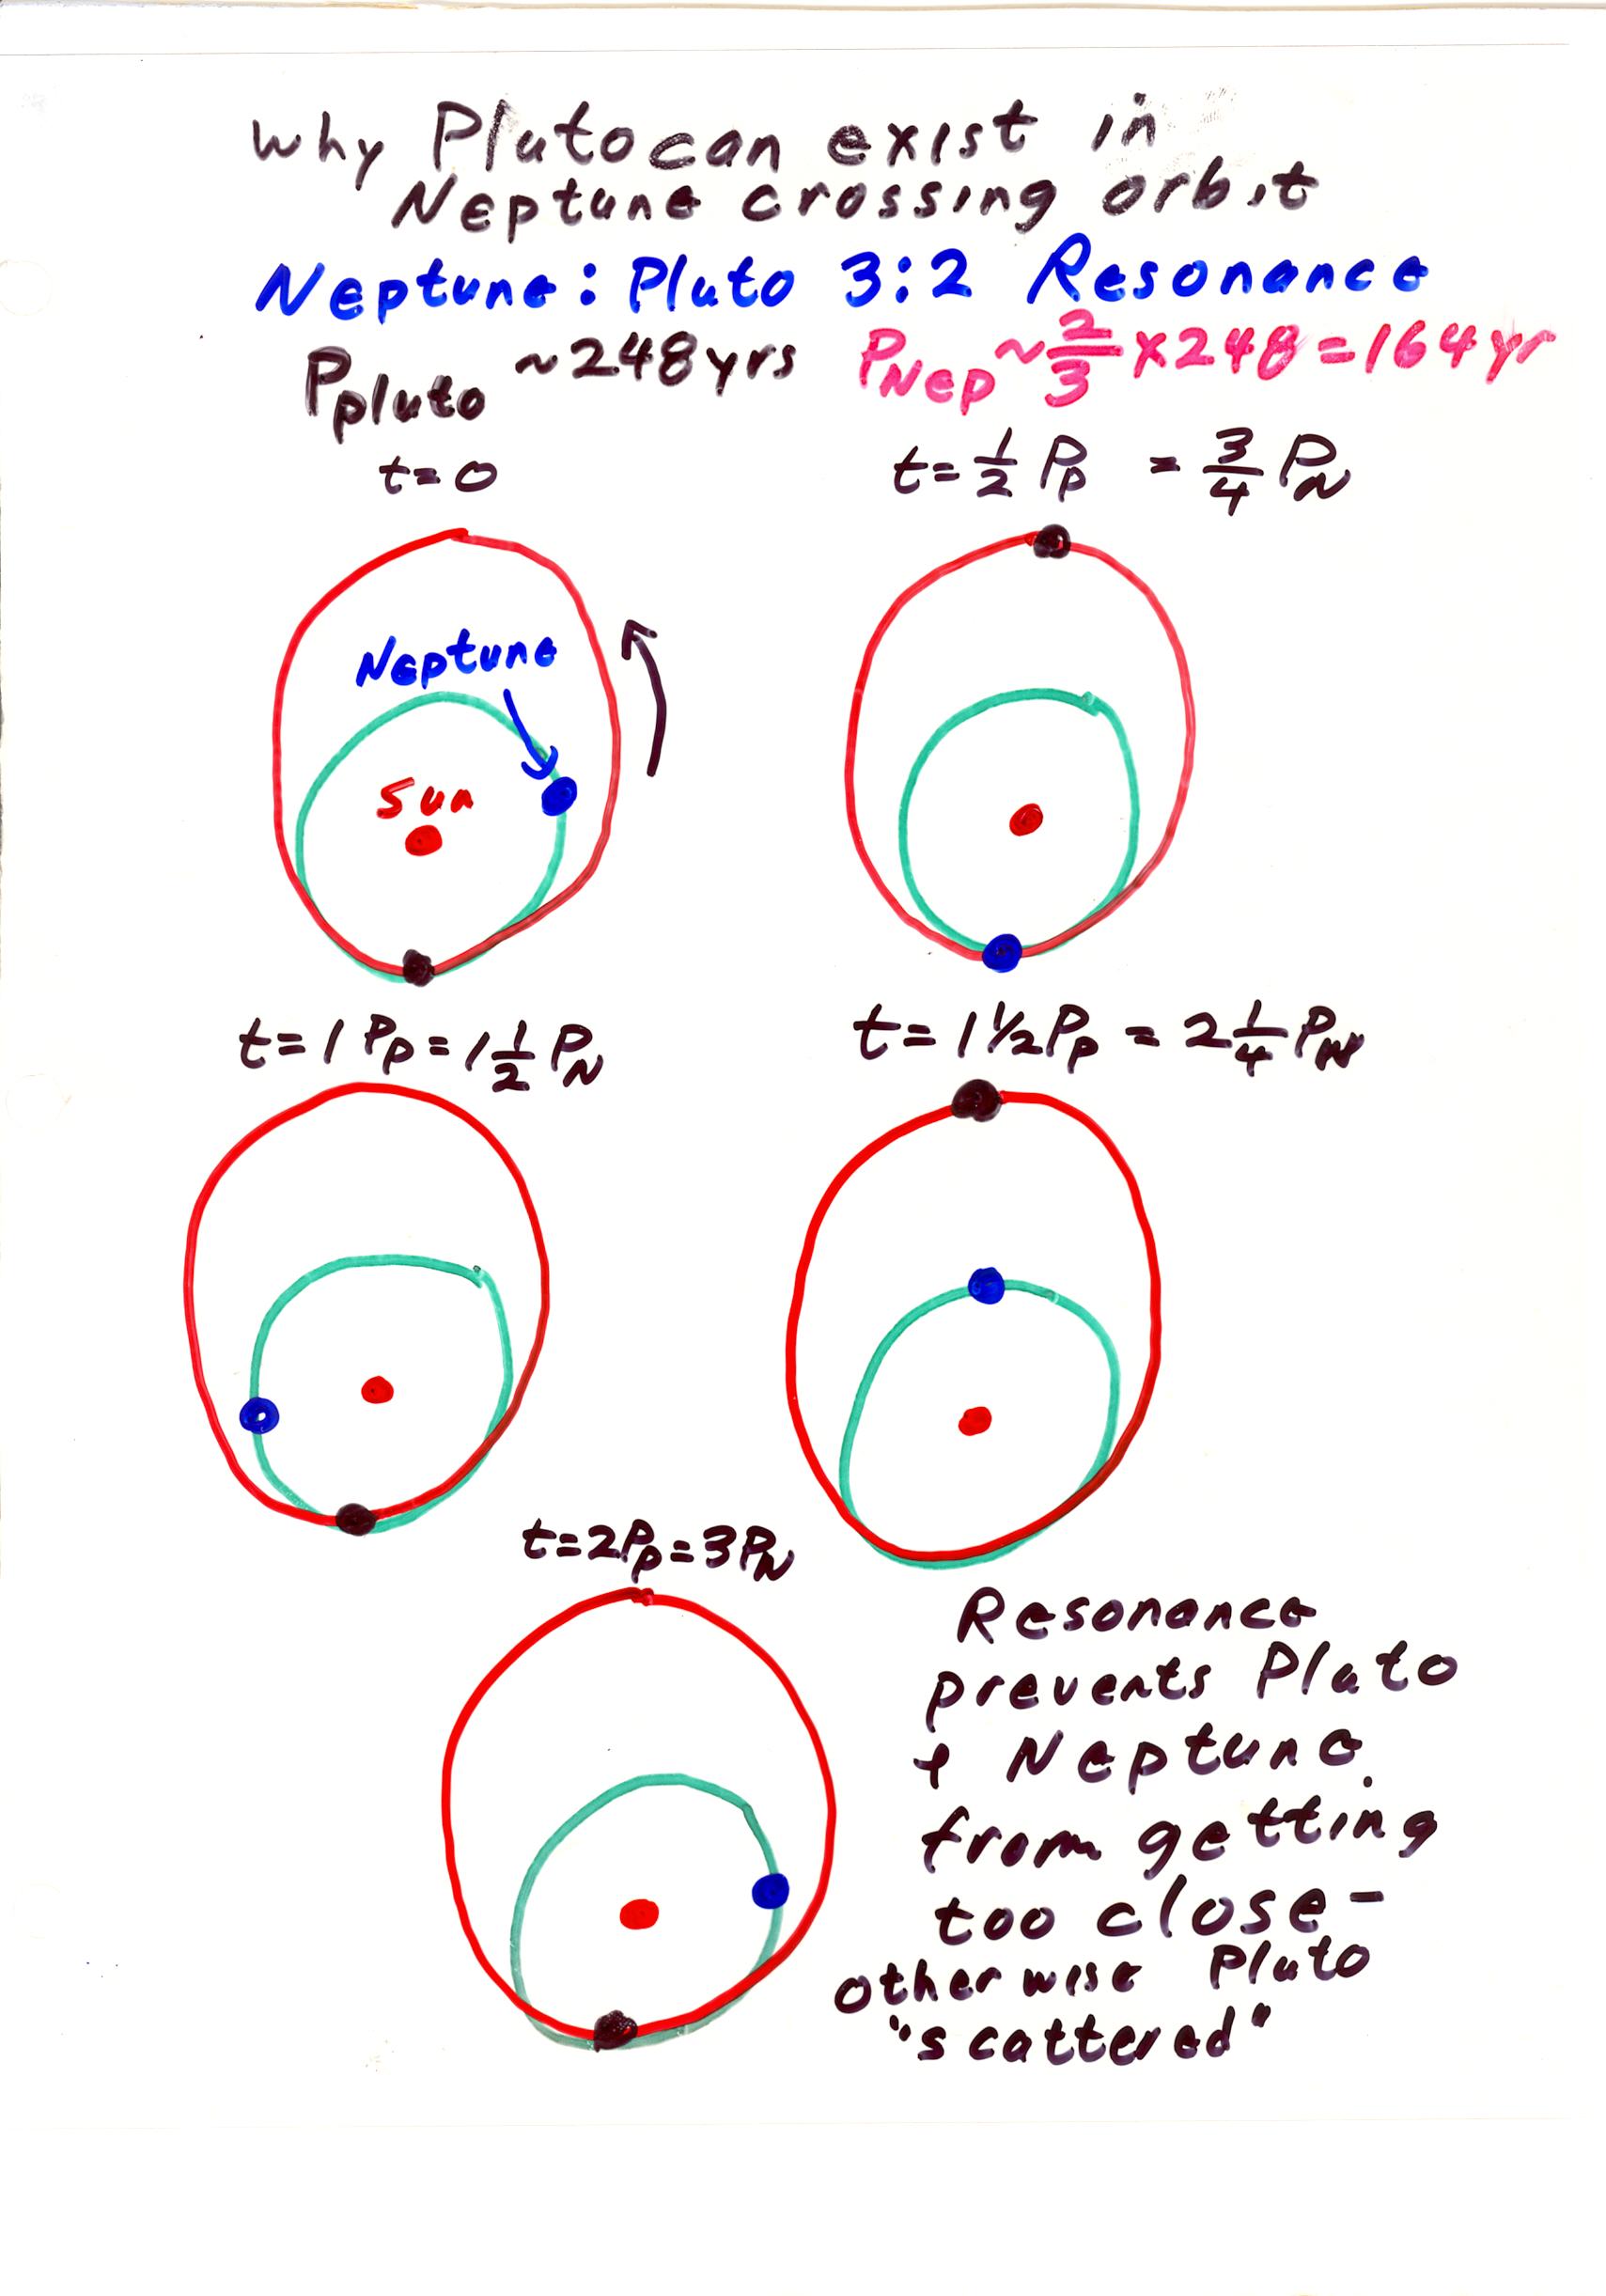 Why Pluto can exist in
Neptune crossing orbit
Neptune: Pluto 3:2 Resonance
P_pluto ~248yrs P_Nep ~ 2/3 × 248 = 164 yr
t=0
t= 1/2 P_p = 3/4 P_N
Neptune
Sun
t= 1 P_p = 1 1/2 P_N
t= 1 1/2 P_p = 2 1/4 P_N
t=2P_p=3P_N
Resonance
prevents Pluto
+ Neptune
from getting
too close-
otherwise Pluto
"scattered"